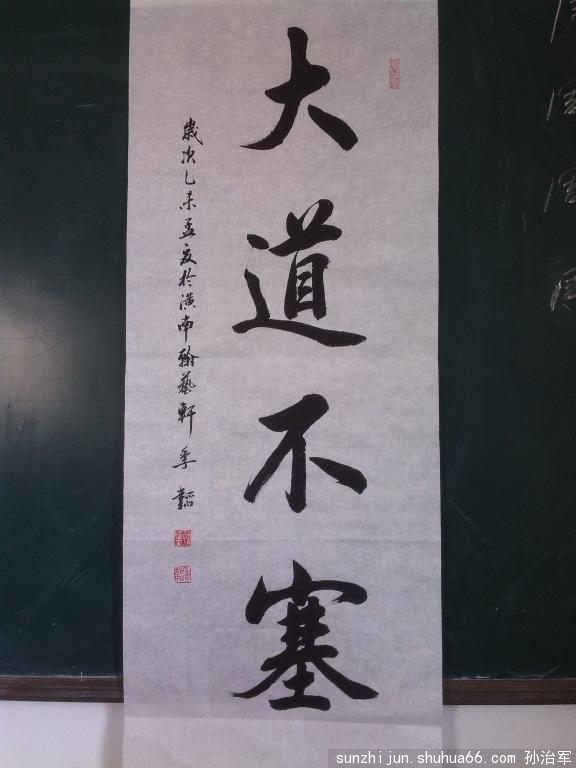 大道不塞
歲次乙未孟夏於潢南翰藝軒 季韜
sunzhijun.shuhua66.com 孙治军